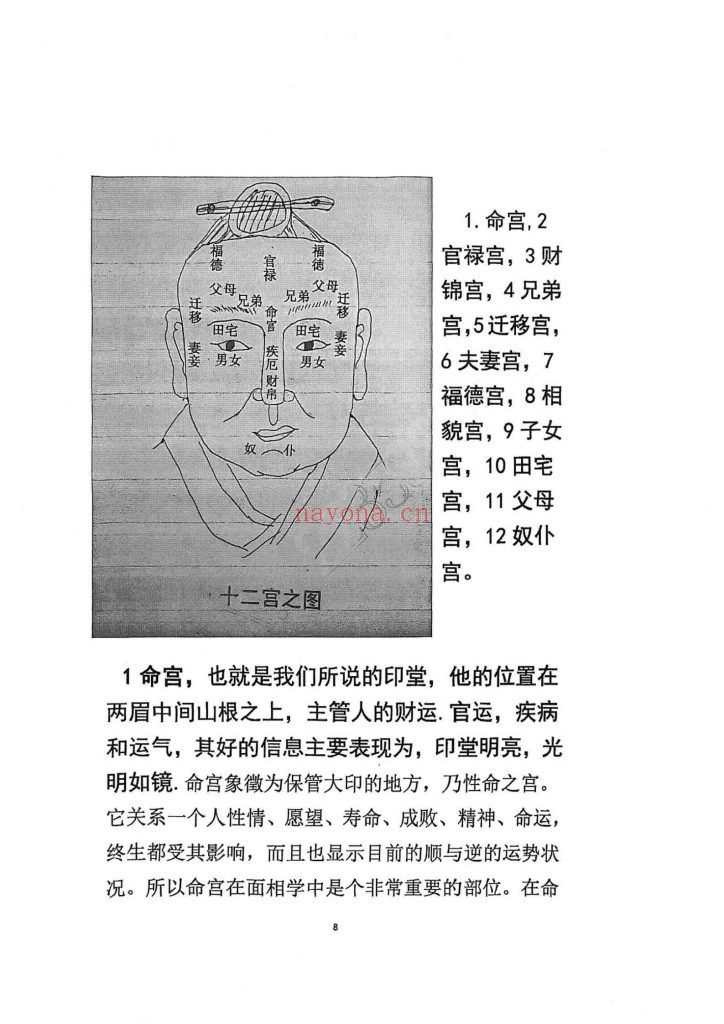 福德
官禄
福德
父母
父母
迁移
兄弟
兄弟
迁移
命宫
田宅
田宅
妻妾
妻妾
男女
疾厄
男女
财帛
奴仆
nayona.cn
十二宫之图
1.命宫,2
官禄宫，3 财
锦宫，4 兄弟
宫,5 迁移宫，
6 夫妻宫，7
福德宫，8 相
貌宫，9 子女
宫，10 田宅
宫，11 父母
宫，12 奴仆
宫。
1 命宫，也就是我们所说的印堂，他的位置在
两眉中间山根之上，主管人的财运.官运，疾病
和运气，其好的信息主要表现为，印堂明亮，光
明如镜.命宫象徵为保管大印的地方，乃性命之宫。
它关系一个人性情、愿望、寿命、成败、精神、命运，
终生都受其影响，而且也显示目前的顺与逆的运势状
况。所以命宫在面相学中是个非常重要的部位。在命
8